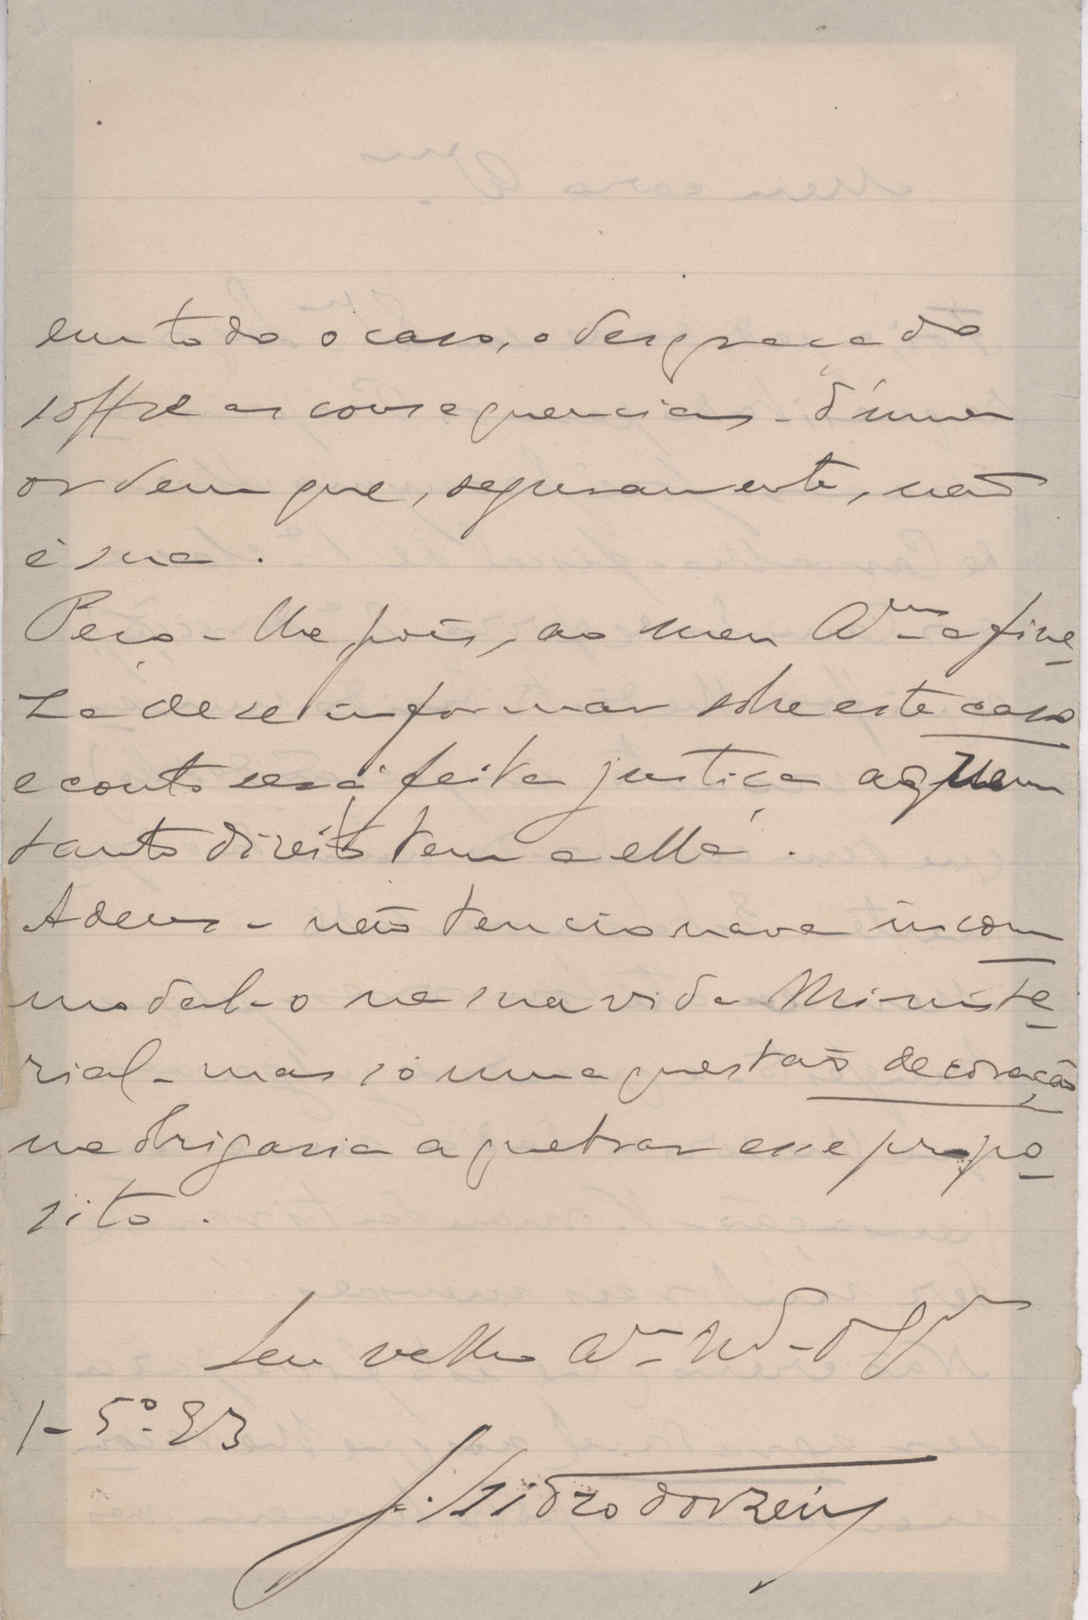 em todo o caso, o desgraçado
soffre as consequencias - d'uma
ordem que, seguramente, não
é sua.
Peço-lhe, pois, ao meu Am.º a fine-
za de se informar sobre este caso
e conto será feita justiça a quem
tanto direito tem a ella.
Adeus - não tencionava incom-
modal-o na sua vida Ministe-
rial - mas só uma questão de coração
me obrigaria a quebrar esse propo-
sito.
Seu velho Am.º
1-5º-23
J. Isidro dos Reis